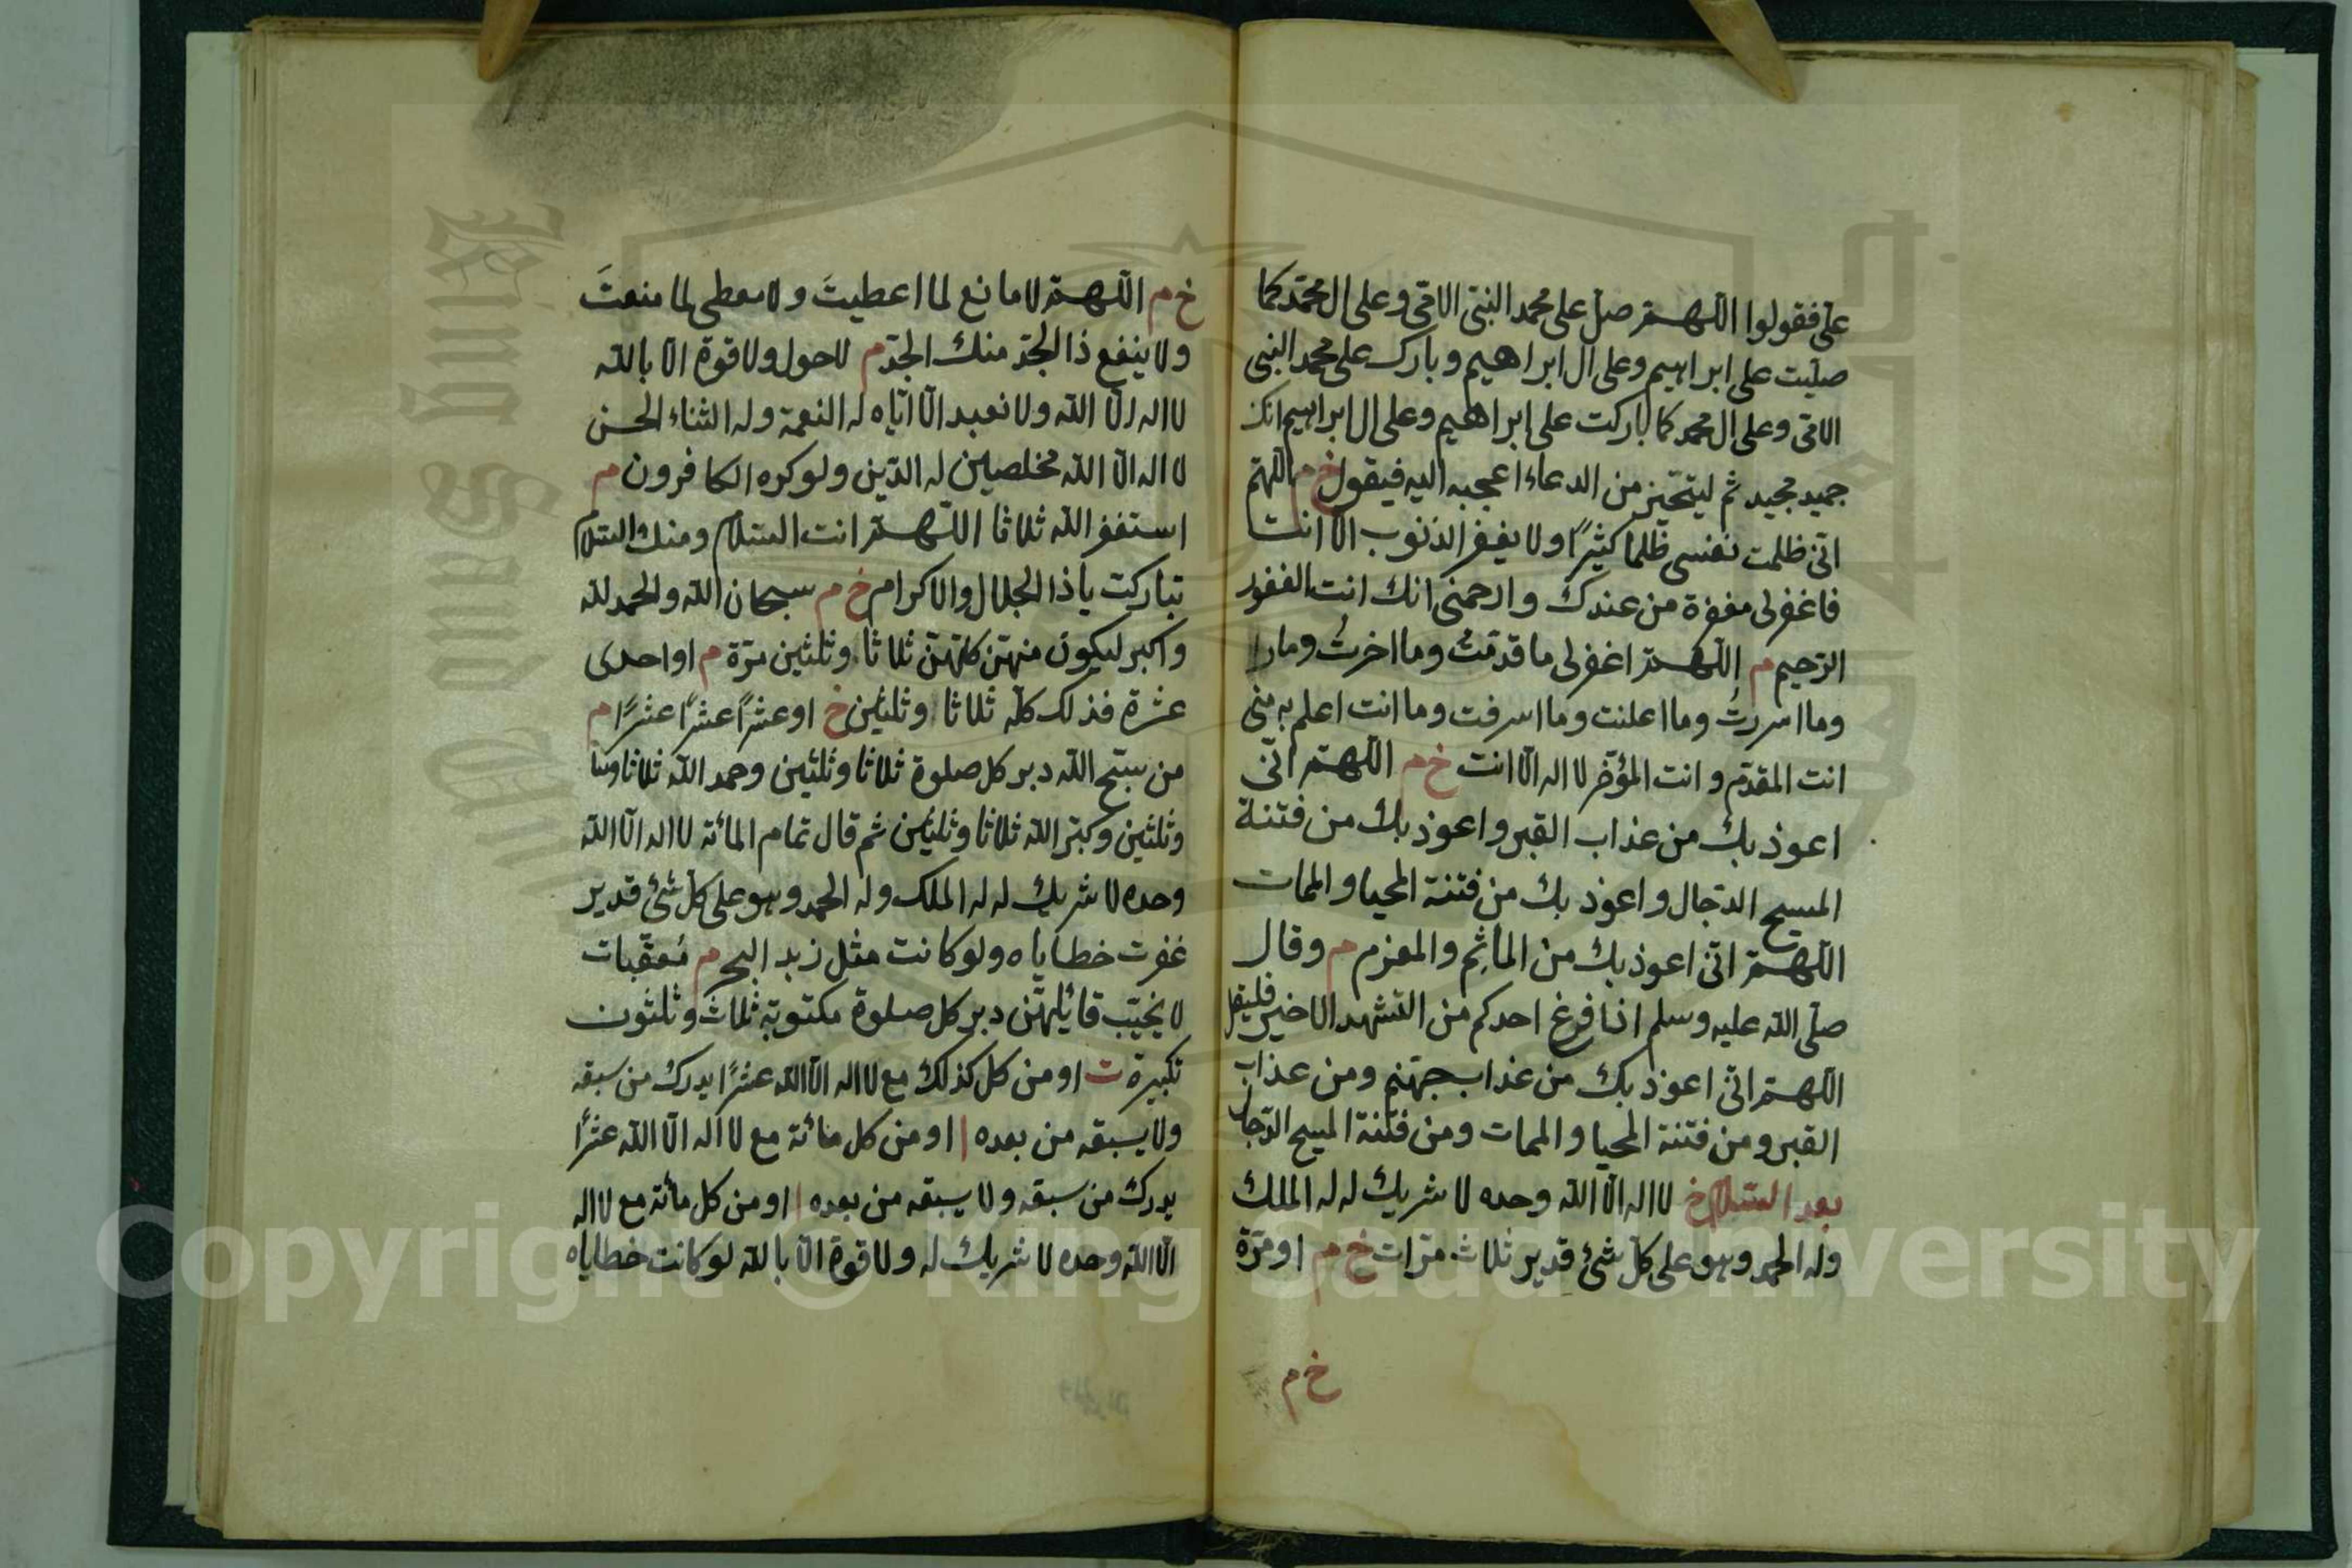 علىّ فقولوا اللهم صل على محمد النبى الامى وعلى ال محمد كما
صليت على ابراهيم وعلى ال ابراهيم وبارك على محمد النبى
الامى وعلى ال محمد كما باركت على ابراهيم وعلى ال ابراهيم انك
حميد مجيد ثم ليتخير من الدعاء اعجبه اليه فيقول خ م اللهم
انى ظلمت نفسى ظلما كثيرًا ولا يغفر الذنوب الا انت
فاغفرلى مغفرة من عندك وارحمنى انك انت الغفور
الرحيم م اللهم اغفرلى ما قدمتُ وما اخرتُ
وما اسررتُ وما اعلنت وما اسرفت وما انت اعلم به منى
انت المقدم وانت المؤخر لا اله الا انت خ م اللهم انى
اعوذ بك من عذاب القبر واعوذ بك من فتنة
المسيح الدجال واعوذ بك من فتنة المحيا والممات
اللهم انى اعوذ بك من الماثم والمغرم م وقال
صلى الله عليه وسلم اذا فرغ احدكم من التشهد الاخير فليقل
اللهم انى اعوذ بك من عذاب جهنم ومن عذاب
القبر ومن فتنة المحيا والممات ومن فتنة المسيح الدجال
بعد السلام خ لا اله الا الله وحده لا شريك له له الملك
وله الحمد وهو على كل شئ قدير ثلاث مرات خ م او مرّة
خ م
خ م اللهم لا مانع لما اعطيتَ ولا معطى لما منعتَ
ولا ينفع ذا الجدّ منك الجدّ م لا حول ولا قوة الا بالله
لا اله الا الله ولا نعبد الا اياه له النعمة وله الثناء الحسن
لا اله الا الله مخلصين له الدين ولو كره الكافرون م
استغفر الله ثلاثا اللهم انت السلام ومنك السلام
تباركت يا ذا الجلال والاكرام خ م سبحان الله والحمد لله
واكبر ليكون منهن كلهن ثلاثا وثلثين مرّة م او احدى
عشرة فذلك كله ثلاثا وثلثين خ او عشرًا عشرًا عشرًا م
من سبح الله دبر كل صلوة ثلاثا وثلثين وحمد الله ثلاثا
وثلثين وكبر الله ثلاثا وثلثين ثم قال تمام المائة لا اله الا الله
وحده لا شريك له له الملك وله الحمد وهو على كل شئ قدير
غفرت خطاياه ولو كانت مثل زبد البحر م مُعقّبات
لا يخيّب قائلهن دبر كل صلوة مكتوبة ثلاث وثلثون
تكبيرة ت او من كل كذلك مع لا اله الا الله عشرًا يدرك من سبقه
ولا يسبقه من بعده ا او من كل مائة مع لا اله الا الله عشرًا
يدرك من سبقه ولا يسبقه من بعده ا او من كل مائة مع لا اله
الا الله وحده لا شريك له ولا قوة الا بالله لو كانت خطاياه
Copyright © King Saud University